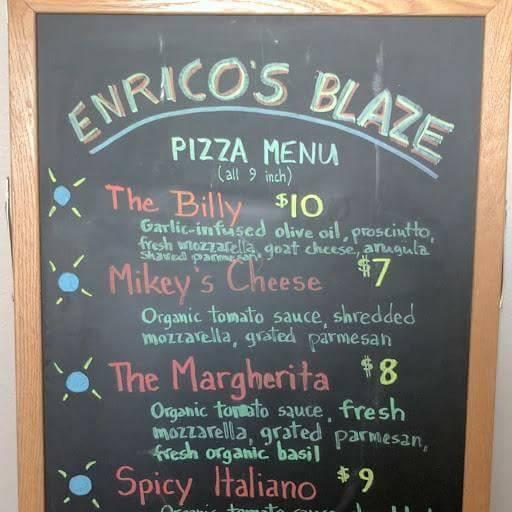 ENRICO'S BLAZE
PIZZA MENU
(all 9 inch)
The Billy $10
Garlic-infused olive oil, prosciutto,
fresh mozzarella, goat cheese, arugula
shaved parmesan
Mikey's Cheese $7
Organic tomato sauce, shredded
mozzarella, grated parmesan
The Margherita $8
Organic tomato sauce, fresh
mozzarella, grated parmesan,
fresh organic basil
Spicy Italiano $9
Organic tomato sauce,